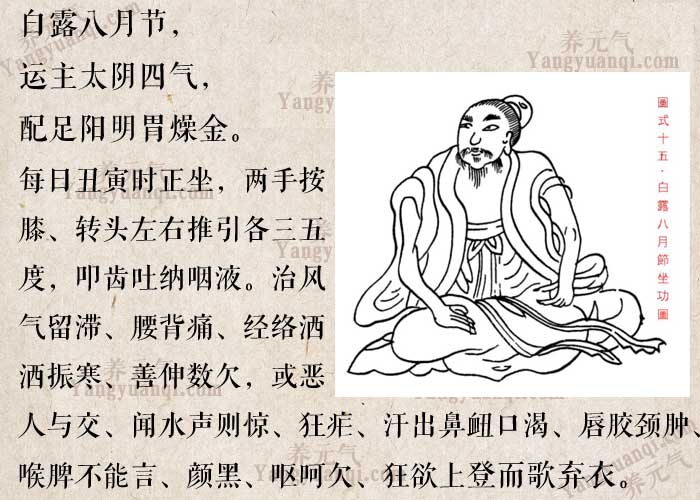 白露八月节，
运主太阴四气，
配足阳明胃燥金。
每日丑寅时正坐，两手按
膝、转头左右推引各三五
度，叩齿吐纳咽液。治风
气留滞、腰背痛、经络洒
洒振寒、善伸数欠，或恶
人与交、闻水声则惊、狂疟、汗出鼻衄口渴、唇胶颈肿、
喉脾不能言、颜黑、呕呵欠、狂欲上登而歌弃衣。
圖式十五·白露八月節坐功圖
养元气
Yangyuanqi.com